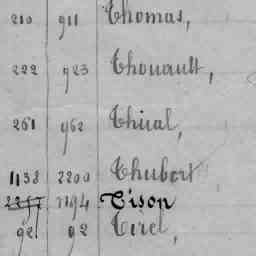 210 911 Thomas,
222 923 Thouault,
261 962 Thual,
1138 2200 Thubert
2194 Tison
92 92 Tirel,